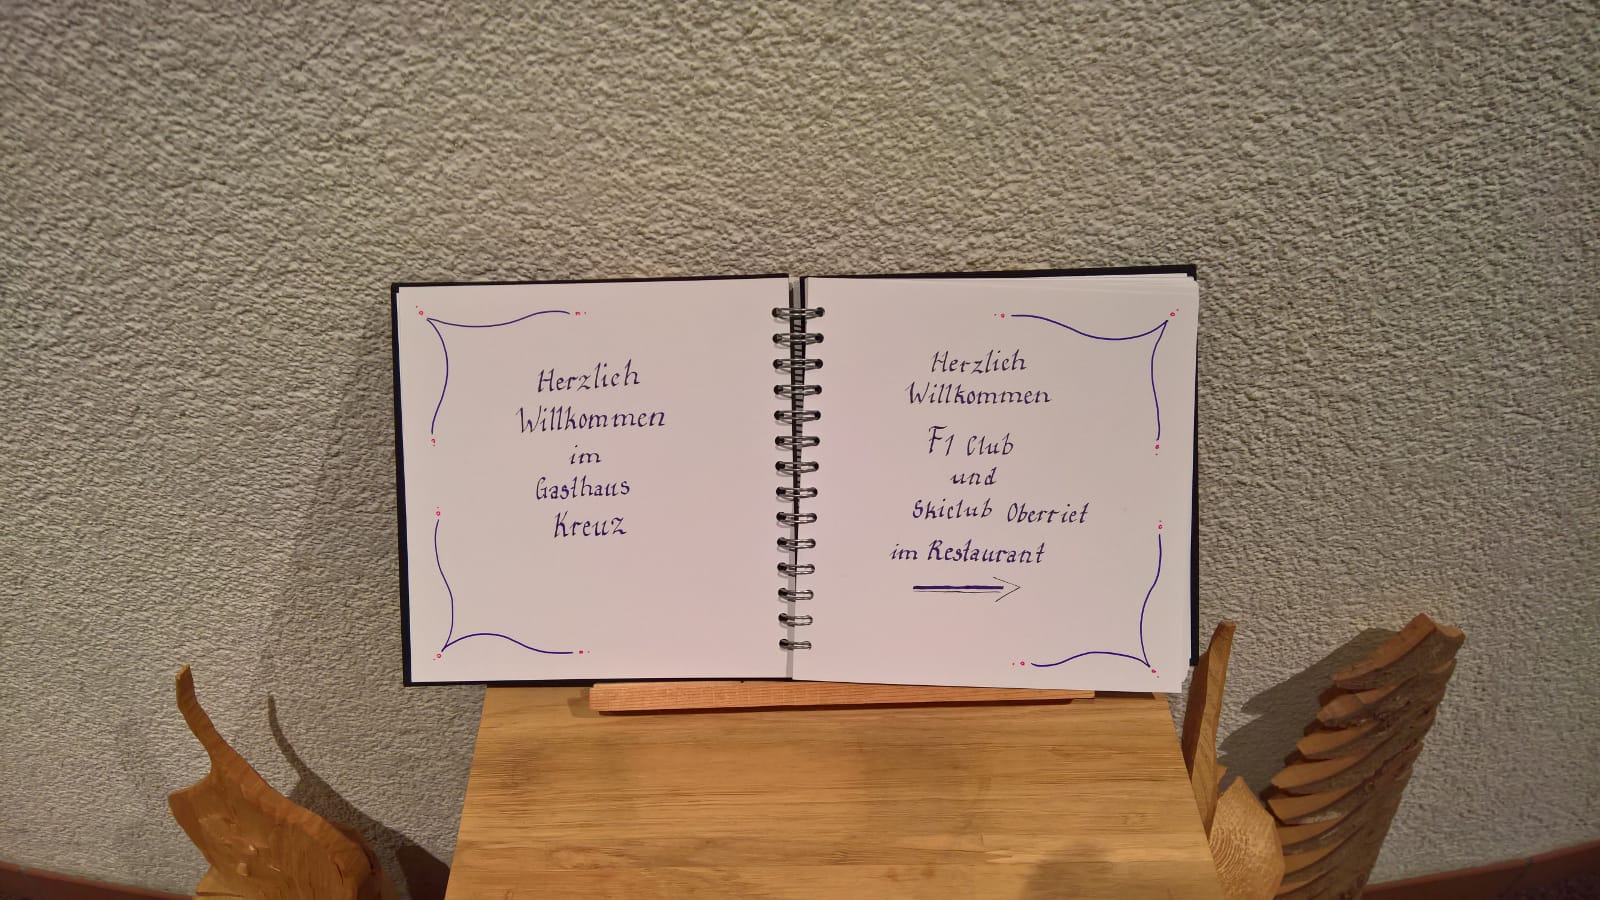 Herzlich
Willkommen
im
Gasthaus
Kreuz
Herzlich
Willkommen
F1 Club
und
Skiclub Oberriet
im Restaurant